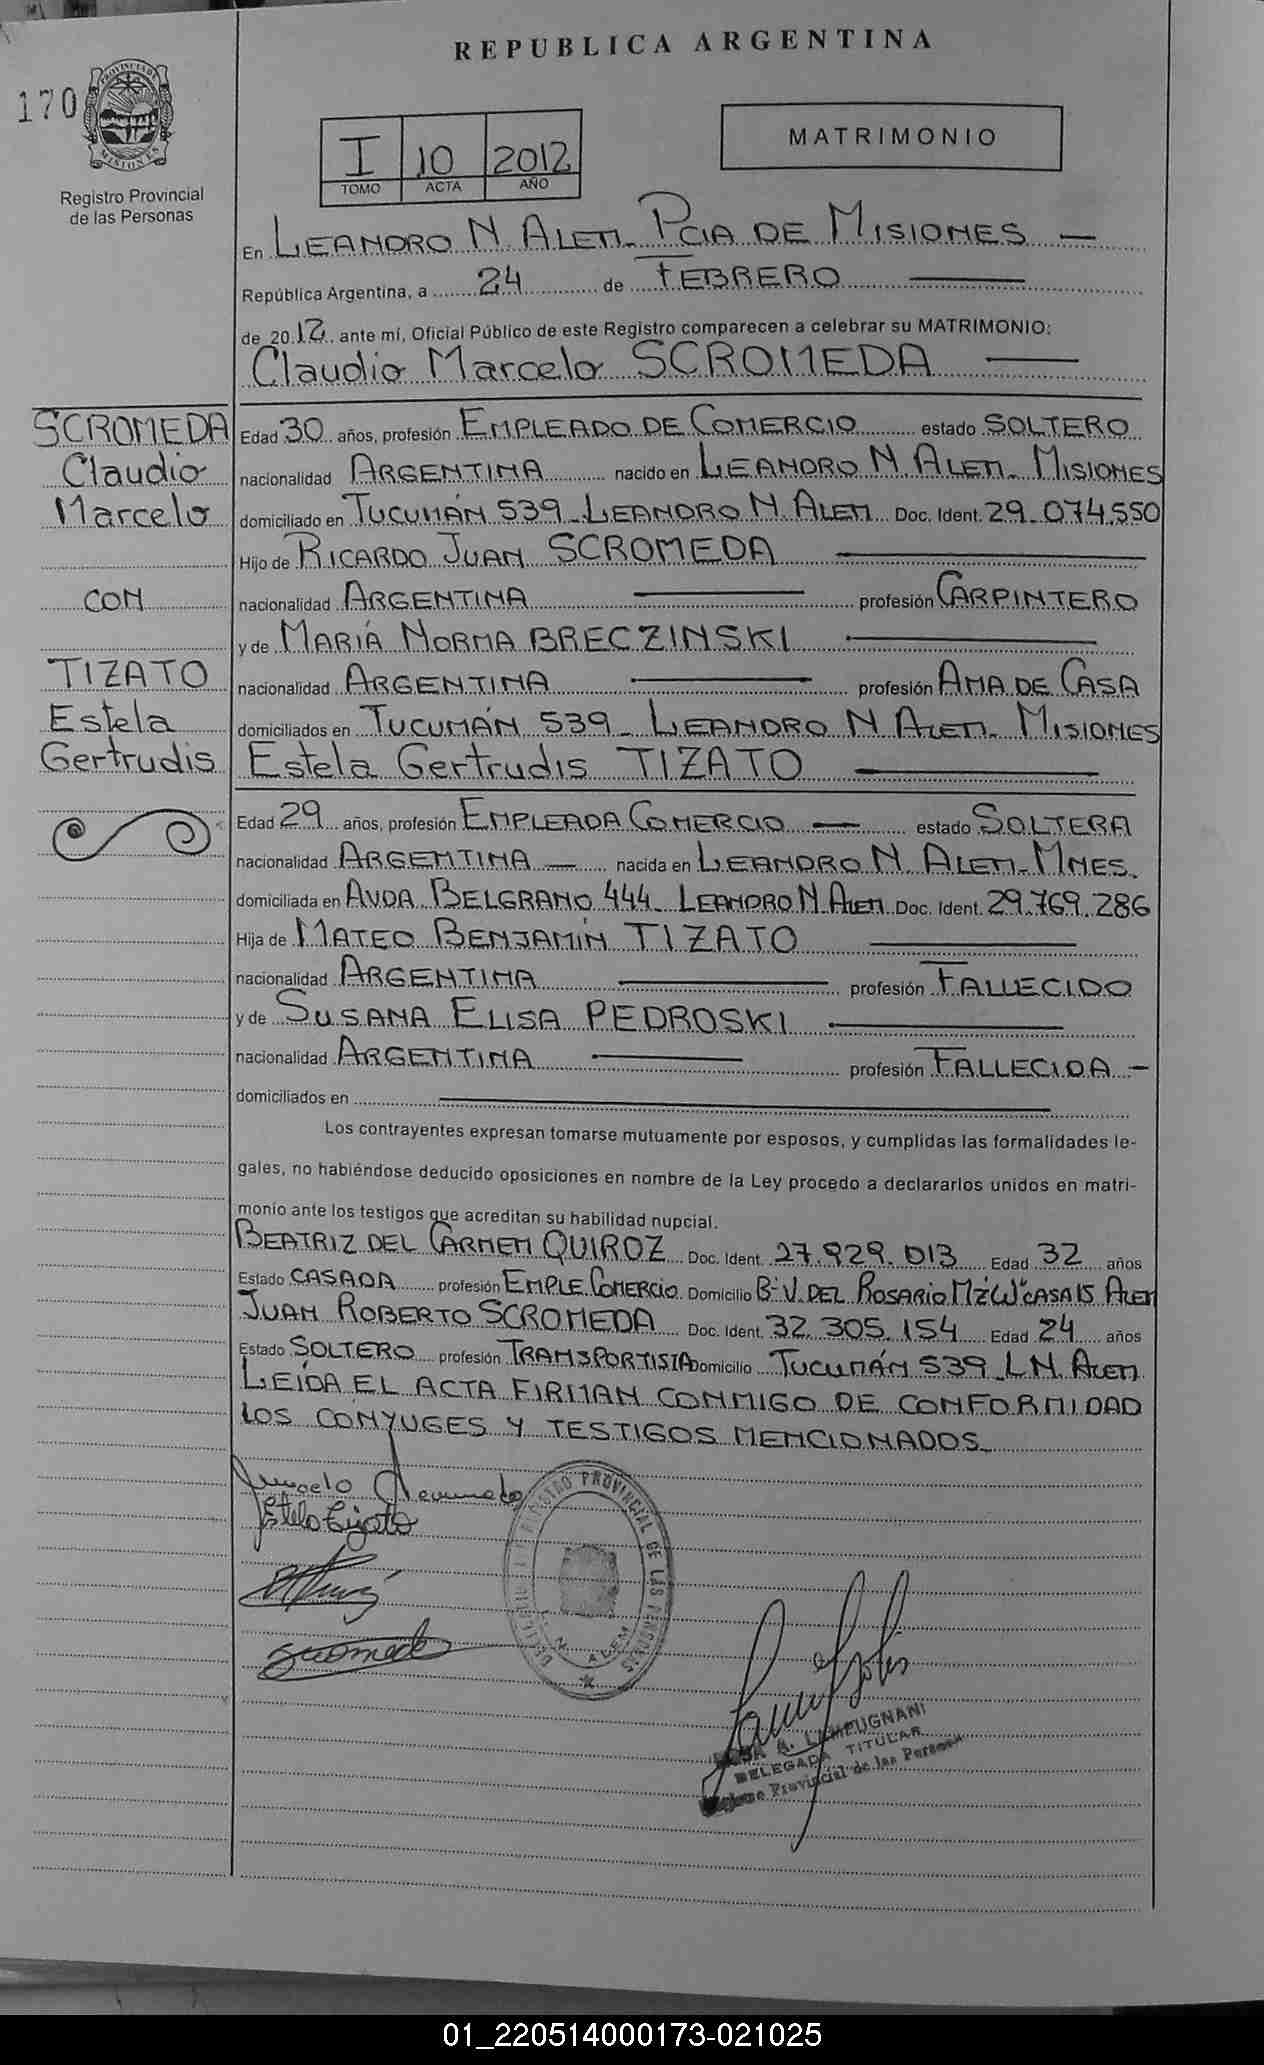 REPUBLICA ARGENTINA
170
PROVINCIA DE
MISIONES
Registro Provincial
de las Personas
I 10 2012
TOMO ACTA AÑO
MATRIMONIO
En LEANDRO N. ALEM - PCIA DE MISIONES —
República Argentina, a 24 de FEBRERO —
de 2012, ante mí, Oficial Público de este Registro comparecen a celebrar su MATRIMONIO:
Claudio Marcelo SCROMEDA —
SCROMEDA
Claudio
Marcelo
CON
TIZATO
Estela
Gertrudis
Edad 30 años, profesión EMPLEADO DE COMERCIO estado SOLTERO
nacionalidad ARGENTINA nacido en LEANDRO N. ALEM - MISIONES
domiciliado en TUCUMÁN 539 - LEANDRO N. ALEM Doc. Ident. 29.074.550
Hijo de RICARDO JUAN SCROMEDA —
nacionalidad ARGENTINA — profesión CARPINTERO
y de MARIÁ NORMA BRECZINSKI —
nacionalidad ARGENTINA — profesión AMA DE CASA
domiciliados en TUCUMÁN 539 - LEANDRO N. ALEM - MISIONES
Estela Gertrudis TIZATO —
Edad 29 años, profesión EMPLEADA COMERCIO — estado SOLTERA
nacionalidad ARGENTINA — nacida en LEANDRO N. ALEM - MNES.
domiciliada en AVDA BELGRANO 444 - LEANDRO N. ALEM Doc. Ident. 29.769.286
Hija de MATEO BENJAMÍN TIZATO —
nacionalidad ARGENTINA — profesión FALLECIDO
y de SUSANA ELISA PEDROSKI —
nacionalidad ARGENTINA — profesión FALLECIDA —
domiciliados en —
Los contrayentes expresan tomarse mutuamente por esposos, y cumplidas las formalidades le-
gales, no habiéndose deducido oposiciones en nombre de la Ley procedo a declararlos unidos en matri-
monio ante los testigos que acreditan su habilidad nupcial.
BEATRIZ DEL CARMEN QUIROZ Doc. Ident. 27.929.013 Edad 32 años
Estado CASADA profesión EMPLE. COMERCIO Domicilio B° V. DEL ROSARIO MZ "W" CASA 15 ALEM
JUAN ROBERTO SCROMEDA Doc. Ident. 32.305.154 Edad 24 años
Estado SOLTERO profesión TRANSPORTISTA Domicilio TUCUMÁN 539 - L.N. ALEM
LEÍDA EL ACTA FIRMAN CONMIGO DE CONFORMIDAD
LOS CÓNYUGES Y TESTIGOS MENCIONADOS
Estela Tizato
REGISTRO PROVINCIAL DE LAS PERSONAS
N. ALEM
A. LAMPUGNANI
DELEGADA TITULAR
Provincial de las Personas
01_220514000173-021025